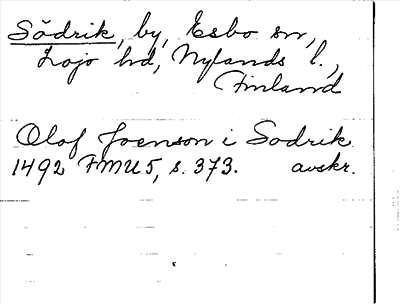 Södrik, by, Esbo sn,
Lojo hd, Nylands l.,
Finland
Olof Joenson i Sodrik
1492 FMU 5, s. 373. avskr.